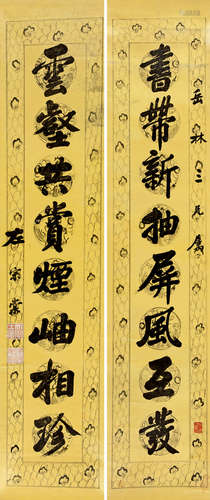 岳林三兄屬
書帶新抽屏風互發
雲壑共賞煙岫相珍
左宗棠